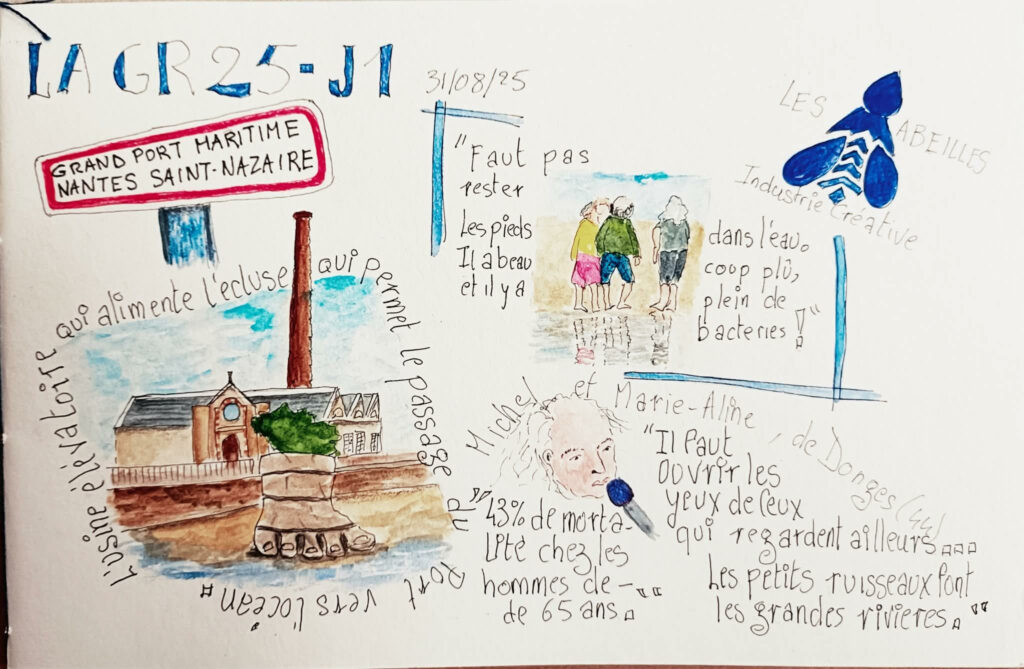 LA GR25-J1
31/08/25
GRAND PORT MARITIME
NANTES SAINT-NAZAIRE
LES
ABEILLES
Industrie Créative
"Faut pas
rester
les pieds
dans l'eau.
Il a beau
coup plû,
et il y a
plein de
bacteries !"
L'usine élévatoire qui alimente l'écluse qui permet le passage du Port vers l'océan.
Michel et Marie-Aline, de Donges (44)
"43% de morta-
lité chez les
hommes de -
de 65 ans."
"Il faut
ouvrir les
yeux de ceux
qui regardent ailleurs...
les petits ruisseaux font
les grandes rivieres."